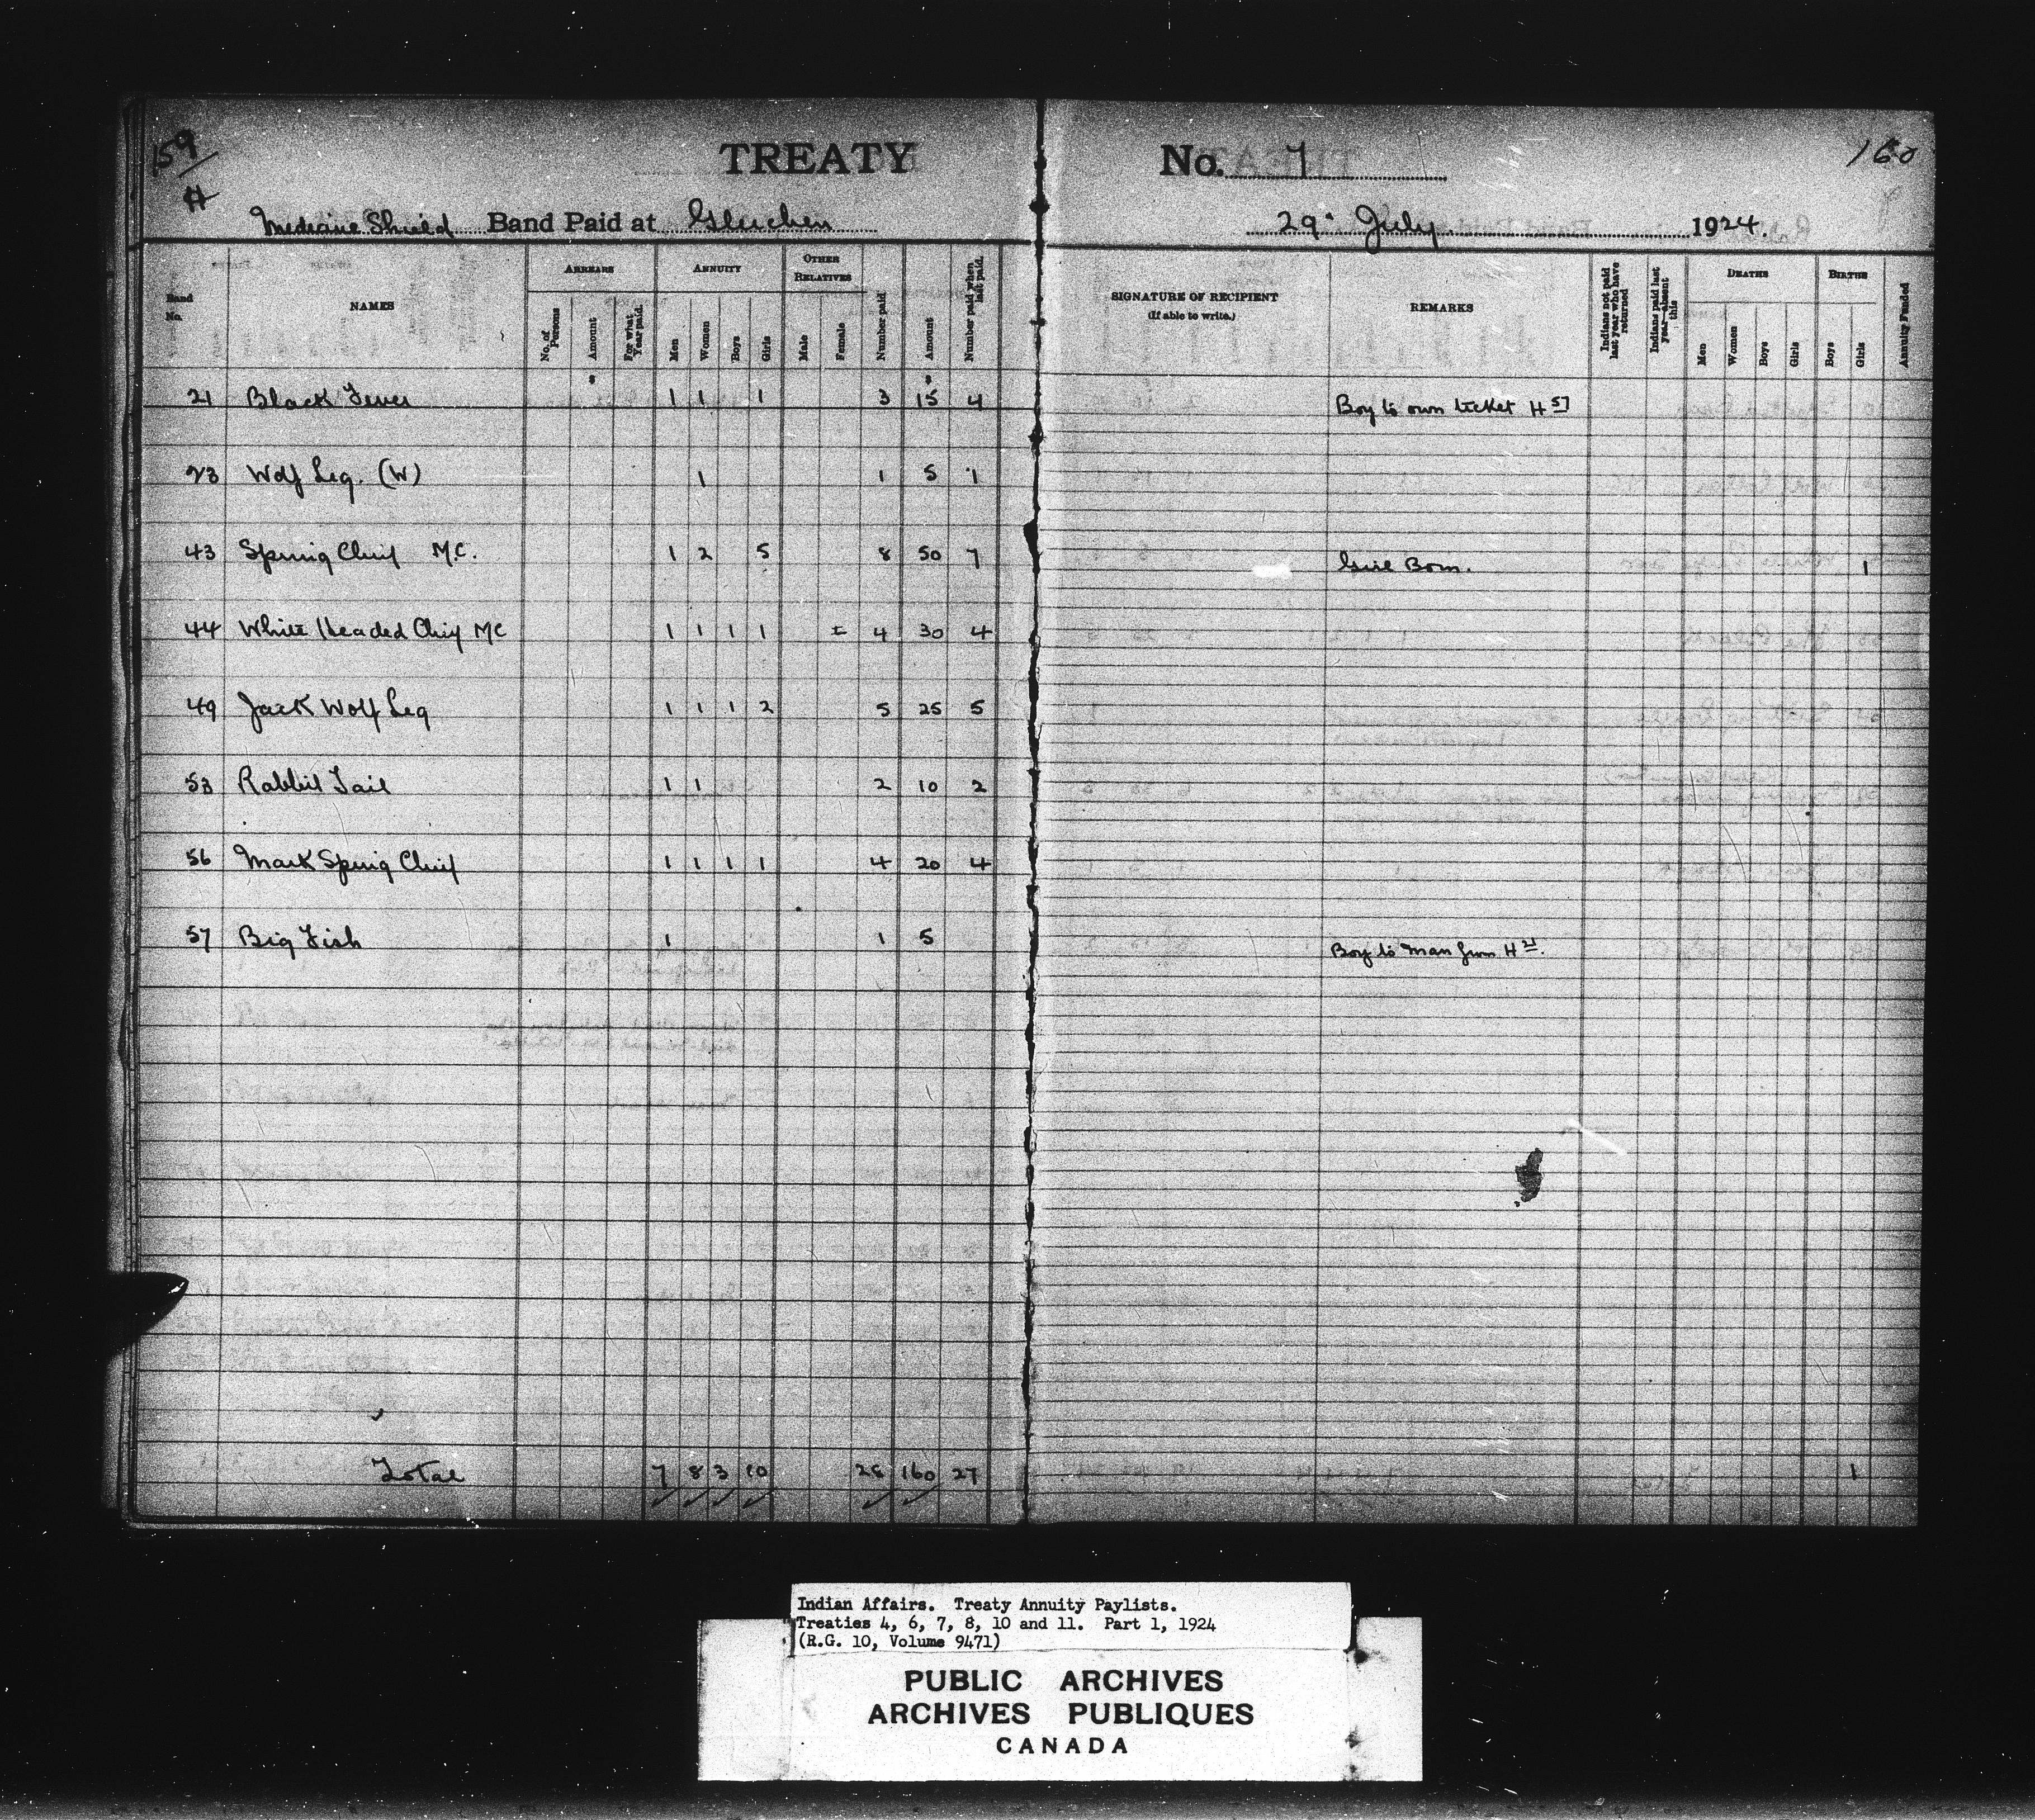 159
TREATY No. 7
160
H
Medicine Shield Band Paid at Gleichen 29 July 1924.
Band No.
NAMES
ARREARS
No. of Persons
Amount
For what Year paid.
ANNUITY
Men
Women
Boys
Girls
OTHER RELATIVES
Male
Female
Number paid
Amount
Number paid when last paid.
SIGNATURE OF RECIPIENT
(If able to write.)
REMARKS
Indians not paid last year who have returned
Indians paid last year—absent this
DEATHS
Men
Women
Boys
Girls
BIRTHS
Boys
Girls
Annuity Funded
$ $
21 Black Fever 1 1 1 3 15 4 Boy to own ticket H 57
23 Wolf Leg. (W) 1 1 5 1
43 Spring Chief M.C. 1 2 5 8 50 7 Girl Born. 1
44 White Headed Chief MC 1 1 1 1 4 30 4
49 Jack Wolf Leg 1 1 1 2 5 25 5
53 Rabbit Tail 1 1 2 10 2
56 Mark Spring Chief 1 1 1 1 4 20 4
57 Big Fish 1 1 5 Boy to Man from H 21.
Total 7 8 3 10 28 160 27 1
Indian Affairs. Treaty Annuity Paylists.
Treaties 4, 6, 7, 8, 10 and 11. Part 1, 1924
(R.G. 10, Volume 9471)
PUBLIC ARCHIVES
ARCHIVES PUBLIQUES
CANADA